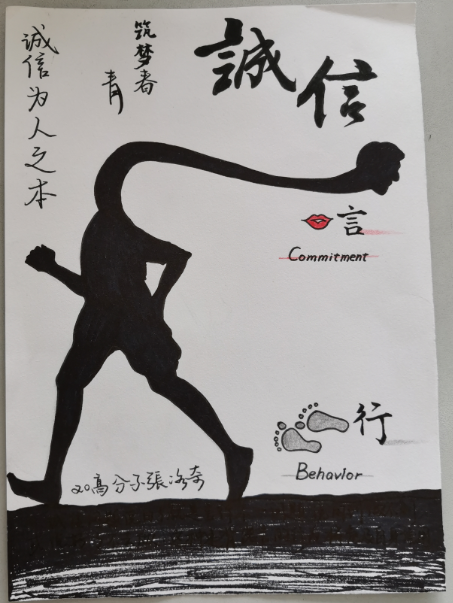 誠信
筑梦者
青
诚信为人之本
言
Commitment
行
Behavior
20高分子張洺奇